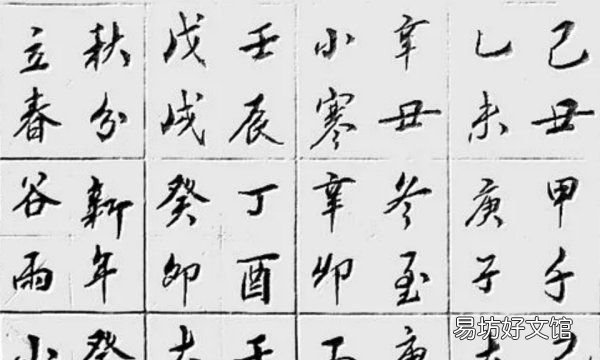 己丑
乙未
辛丑
小寒
壬辰
戊戌
秋分
立春
甲午
庚子
冬至
辛卯
丁酉
癸卯
新年
谷雨
庚
壬
大
癸
小
易坊好文馆